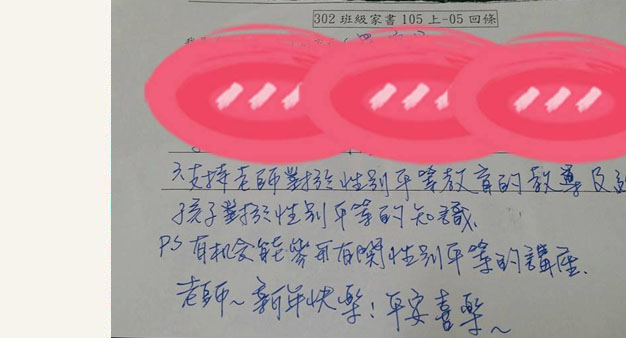 302 班級家書 105 上-05 回條
支持老師對於性別平等教育的教導及
孩子對於性別平等的知識.
PS 有机会能參与有関性別平等的講座.
老師~ 新年快樂! 平安喜樂~